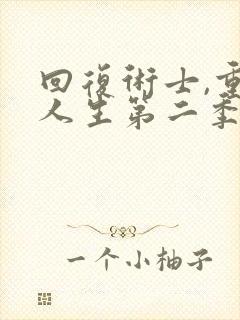 回復術士,重
人生第二季
一个小柚子